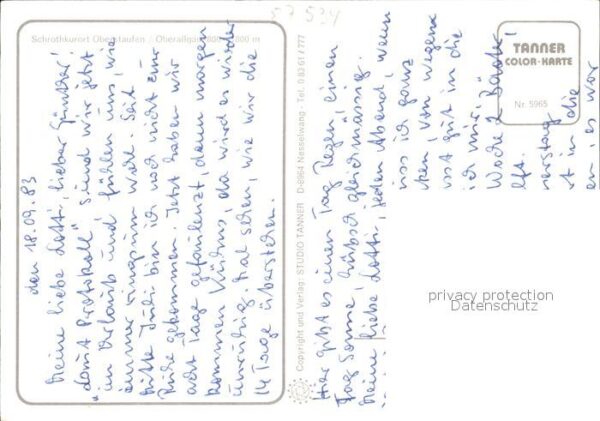 57 524
Schrothkurort Oberstaufen / Oberallgäu 800 - 1800 m
den 18.09.83
Meine liebe Lotti, lieber Günther!
"damit Protokoll" sind wir jetzt
im Urlaub und fühlen uns, wie
immer rundum wohl. Seit
Mitte Juli bin ich noch nicht zur
Ruhe gekommen. Jetzt haben wir
acht Tage gefaulenzt, denn morgen
kommen, da wird es wieder
unruhig. Mal sehen, wie wir die
14 Tage überstehen.
Copyright und Verlag: STUDIO TANNER D-8964 Nesselwang - Tel. 0 83 61 / 777
Hier gibt es einen Tag Regen, einen
Tag Sonne, hübsch gleichmässig.
Meine liebe Lotti, jeden Abend, wenn
ich ganz
von wegen
gut in die
mir.
Woche 2
in die
es war
TANNER
COLOR-KARTE
Nr. 5965
privacy protection
Datenschutz